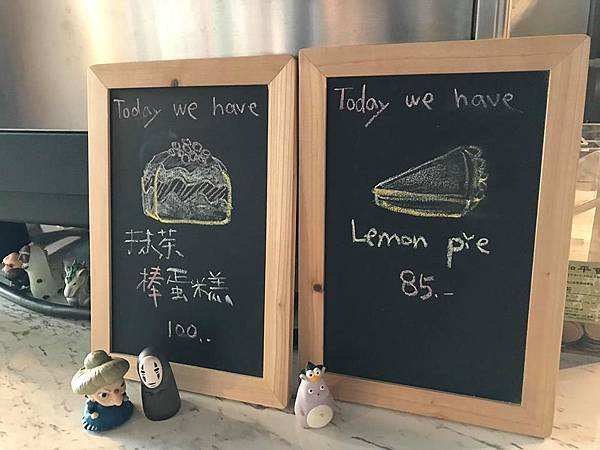 Today we have
抹茶
棒蛋糕
100..
Today we have
Lemon pie
85.-